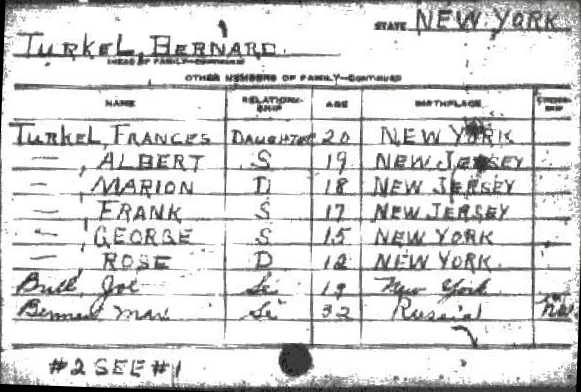 STATE NEW YORK
TURKEL, BERNARD.
(HEAD OF FAMILY—CONTINUED)
OTHER MEMBERS OF FAMILY—CONTINUED
NAME RELATIONSHIP AGE BIRTHPLACE CITIZENSHIP
TURKEL, FRANCES DAUGHTER 20 NEW YORK
— , ALBERT S 19 NEW JERSEY
— , MARION D 18 NEW JERSEY
— , FRANK S 17 NEW JERSEY
— , GEORGE S 15 NEW YORK
— , ROSE D 12 NEW YORK
Joe 19 New York
Max 32 Russia
#2 SEE #1